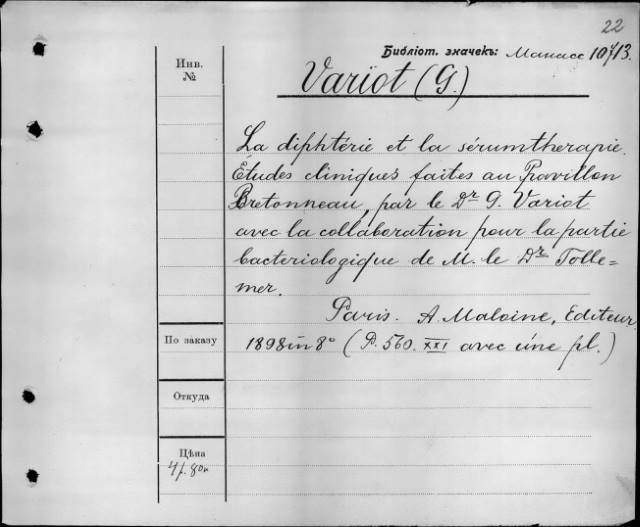 22
Библіот. значекъ: Манасс 10713.
Инв.
№
Variot (G.)
La diphtérie et la sérumtherapie.
Études cliniques faites au Pavillon
Bretonneau, par le Dr G. Variot
avec la collaboration pour la partie
bacteriologique de M. le Dr Tolle=
mer.
Paris. A. Maloine, Editeur
По заказу
1898 in 8° (P. 560. XXI avec une pl.)
Откуда
Цѣна